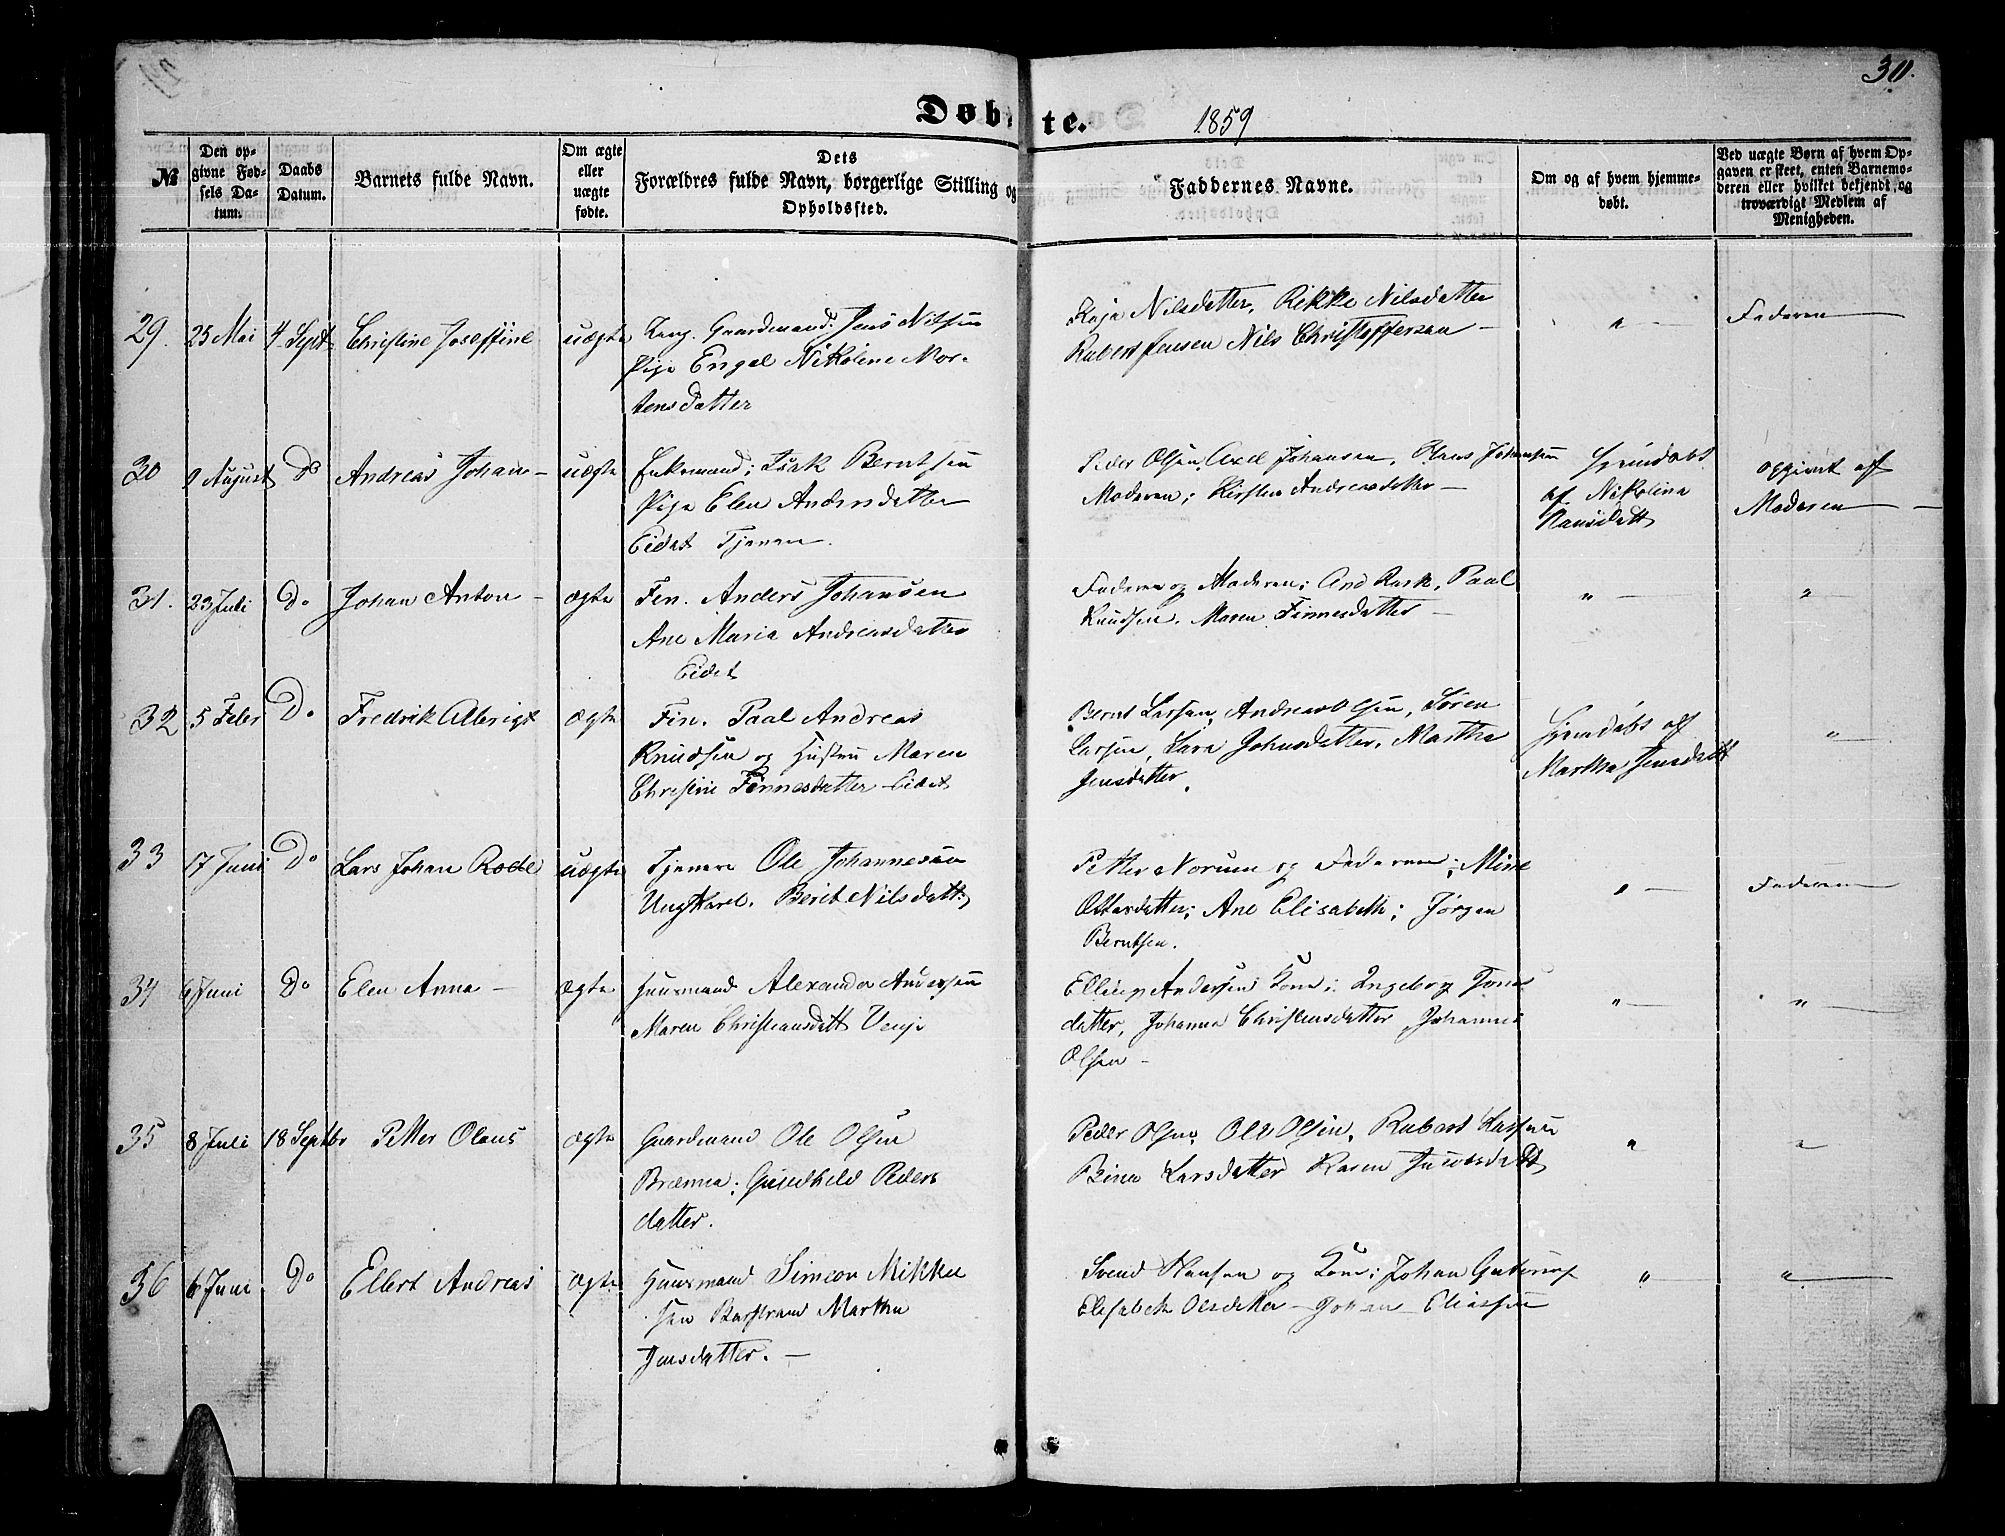 30.
Døbte.
1859
№
Den opgivne Fødsels Datum.
Daabs Datum.
Barnets fulde Navn.
Om ægte eller uægte fødte.
Dets Forældres fulde Navn, borgerlige Stilling og Opholdssted.
Faddernes Navne.
Om og af hvem hjemmedøbt.
Ved uægte Børn af hvem Opgaven er skeet, enten Barnemoderen eller hvilket bekjendt og troværdigt Medlem af Menigheden.
29. 25 Mai 4 Sept Christine Joseffine uægte
Gaardmand: Jens Nilsen
Pige Engel Nikoline Mor-
tensdatter
Kaja Nilsdatter, Rikke Nilsdatter
Rubert Jensen Nils Christoffersen —
" —
Faderen
30 9 August Do Andreas Johan — uægte
Enkemand: Isak Berntsen
Pige Elen Andersdatter
Eidet Tjener.
Peder Olsen, Axel Johansen, Hans Johansen
Moderen; Kirsten Andreasdatter —
Hjemdøbt
af Nikolina
Hansdatt
opgivet af
Moderen —
31. 23 Juli Do Johan Anton — ægte
Fin. Anders Johansen
Ane Maria Andreasdatter
Eidet
Faderen og Moderen; And Rask, Paal
Knudsen, Maren Finnesdatter —
" —
" —
32 5 Febr Do Fredrik Albrigt ægte
Fin. Paal Andreas
Knudsen og Hustru Maren
Christine Finnesdatter Eidet
Bernt Larsen, Andreas Olsen, Søren
Larsen, Lava Johnsdatter, Martha
Jensdatter.
Hjemdøbt af
Martha Jensdatt
" —
33 17 Juni Do Lars Johan Rode uægte
Tjener Ole Johannesen
Ungkarl. Berit Nilsdatt:
Petter Norum og Faderen; Mine
Ottosdatter; Ane Elisabeth; Jørgen
Berntsen.
" —
Faderen
34 6 Juni Do Elen Anna — ægte
Huusmand Alexander Andersen
Maren Christiansdatt
Elling Andersen Kone; Ingeborg Jons
datter, Johanna Christensdatter, Johannes
Olsen —
" —
" —
35 8 Juli 18 Septbr Petter Olaus ægte
Gaardmand Ole Olsen
Brænna; Gundhild Peders
datter.
Peder Olsen, Ole Olsen, Rubert Larsen
Bine Larsdatter Karen Jacobsdatt
"
"
36 6 Juni Do Ellert Andreas ægte
Huusmand Simeon Mikkel
sen Barstrand Martha
Jensdatter. —
Svend Hansen og Kone; Johan
Elisabeth Olsdatter — Johan Eliassen
" —
" —